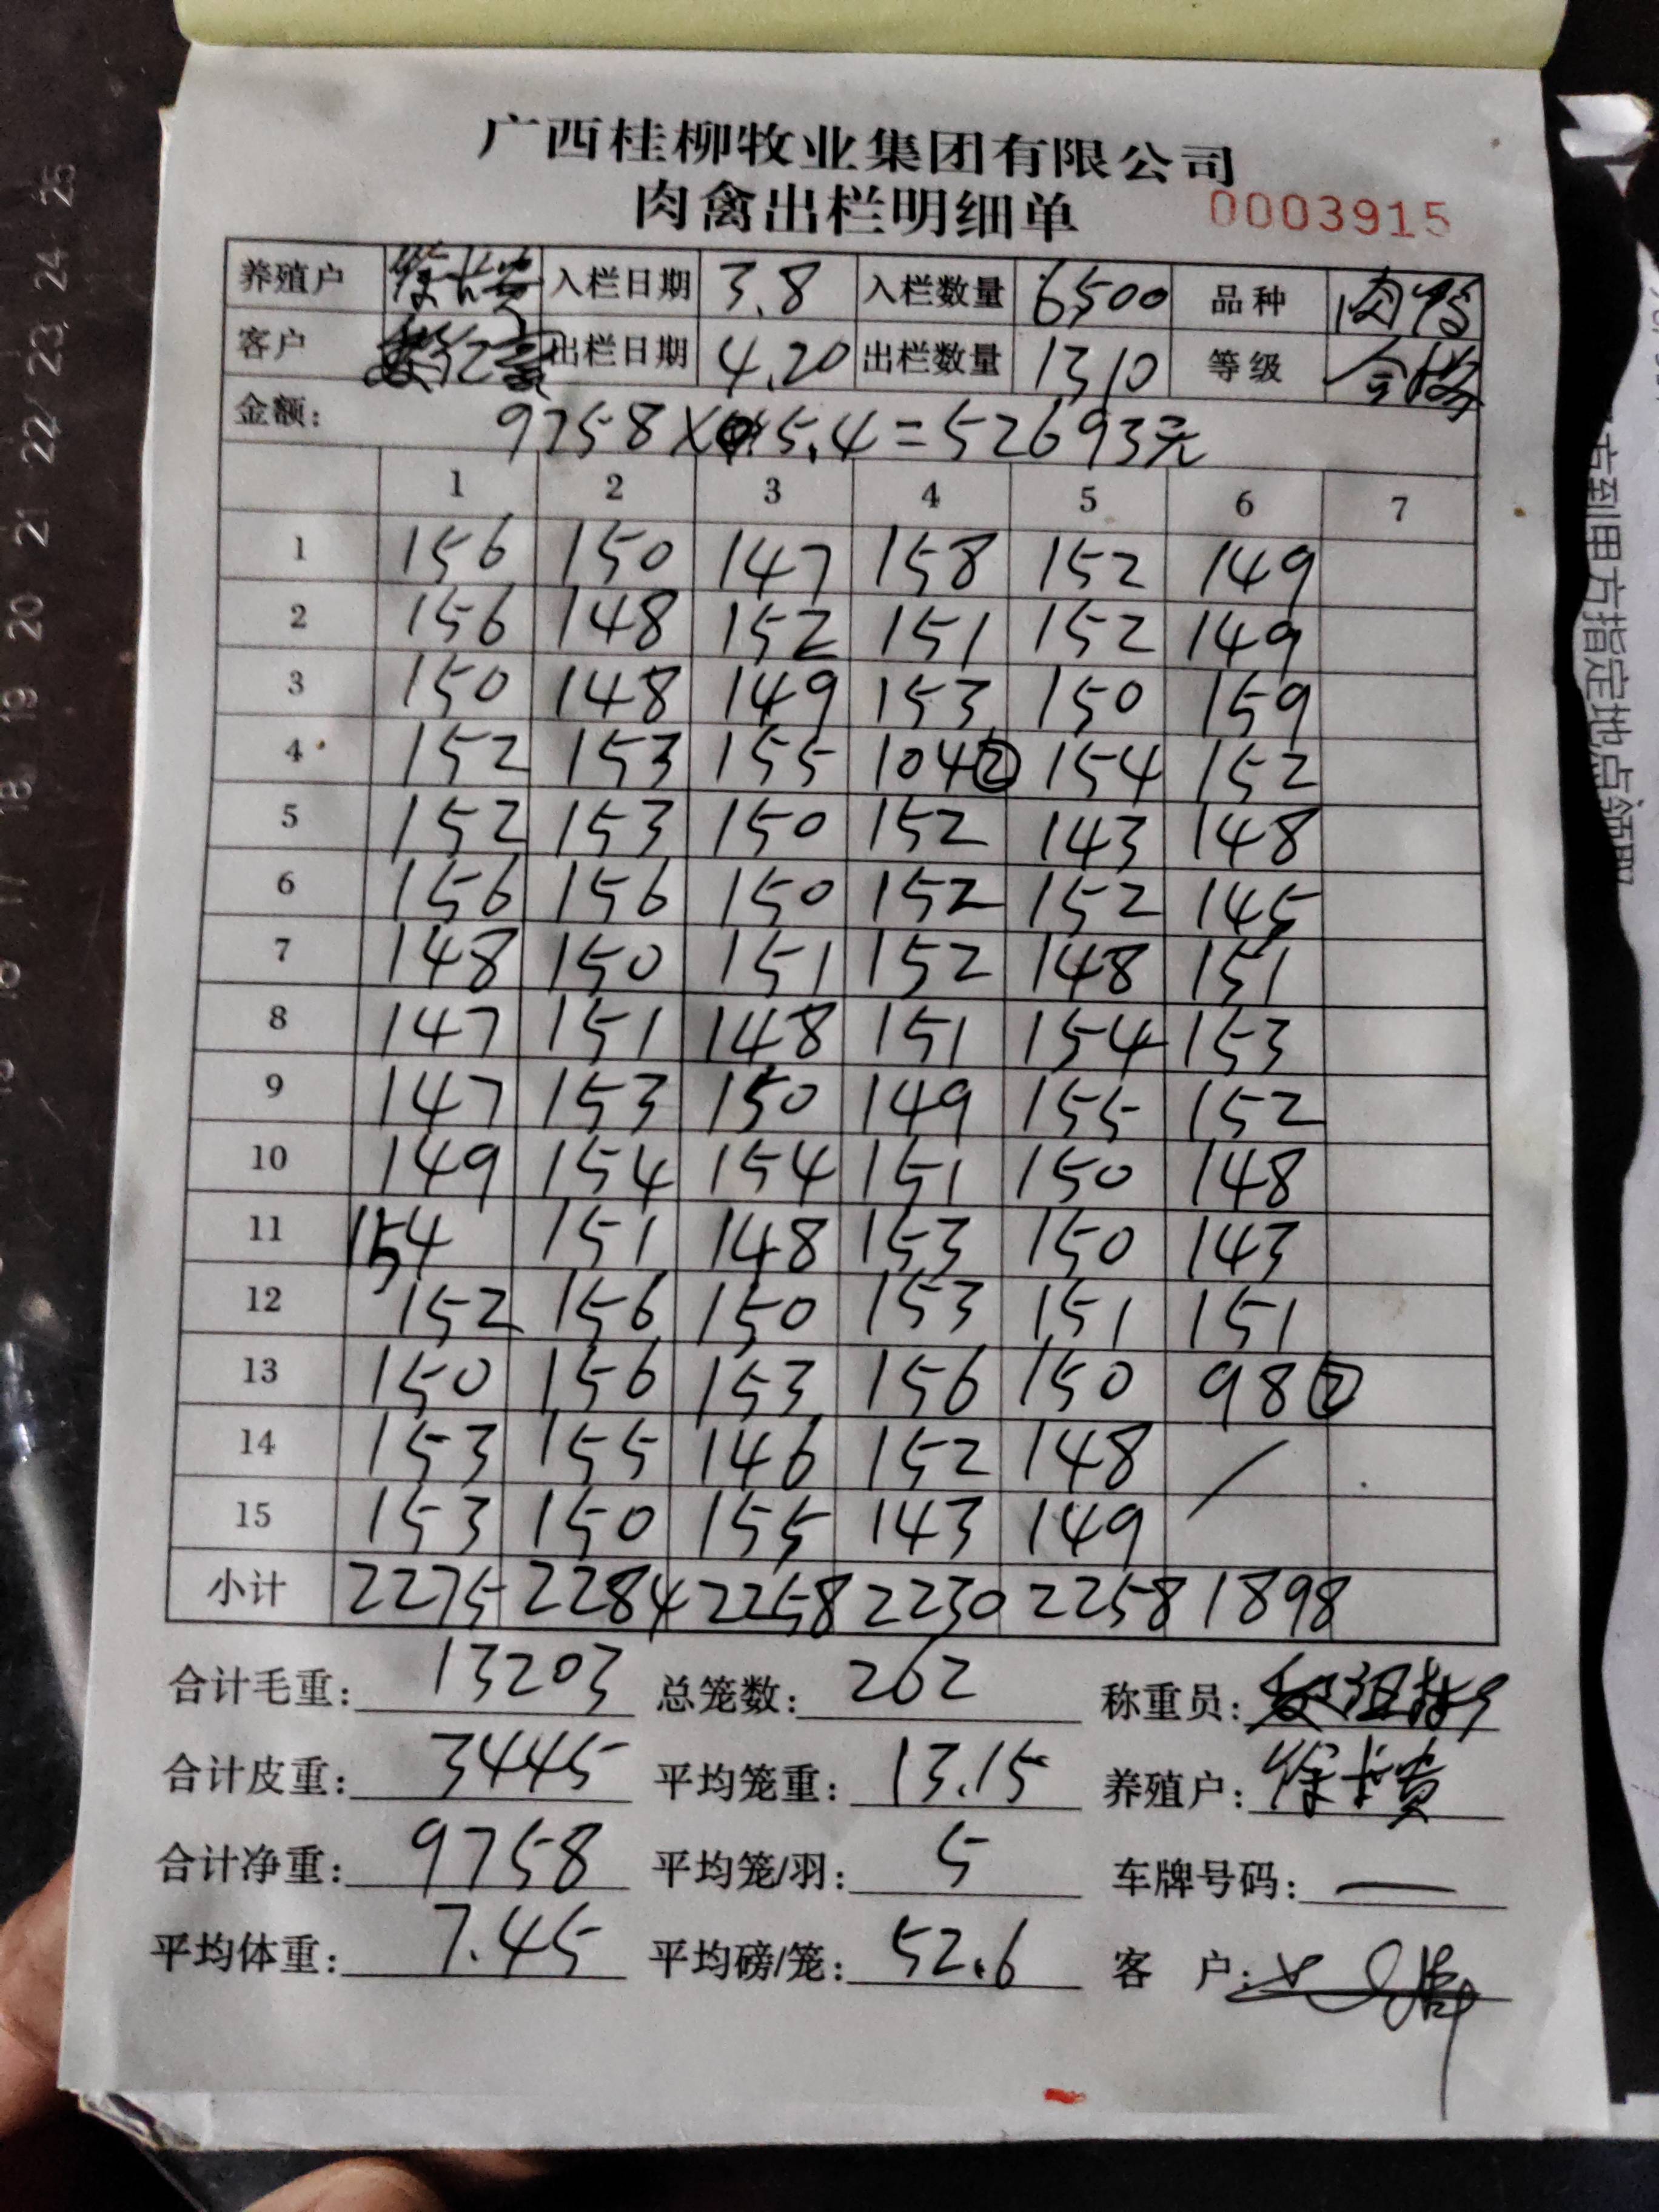 广西桂柳牧业集团有限公司
肉禽出栏明细单 0003915
养殖户 入栏日期 3.8 入栏数量 6500 品种 肉鸭
客户 出栏日期 4.20 出栏数量 1310 等级 合格
金额: 9758×5.4=52693元
1 2 3 4 5 6 7
1 156 150 147 158 152 149
2 156 148 152 151 152 149
3 150 148 149 153 150 159
4 152 153 155 104② 154 152
5 152 153 150 152 143 148
6 156 156 150 152 152 145
7 148 150 151 152 148 151
8 147 151 148 151 154 153
9 147 153 150 149 155 152
10 149 154 154 151 150 148
11 154 151 148 153 150 143
12 152 156 150 153 151 151
13 150 156 153 156 150 98②
14 153 155 146 152 148 /
15 153 150 155 143 149
小计 2275 2284 2258 2230 2258 1898
合计毛重: 13203 总笼数: 262 称重员:
合计皮重: 3445 平均笼重: 13.15 养殖户: 徐长贵
合计净重: 9758 平均笼/羽: 5 车牌号码: —
平均体重: 7.45 平均磅/笼: 52.6 客户:
方到甲方指定地点领取
25
24
23
22
21
20
19
18
17